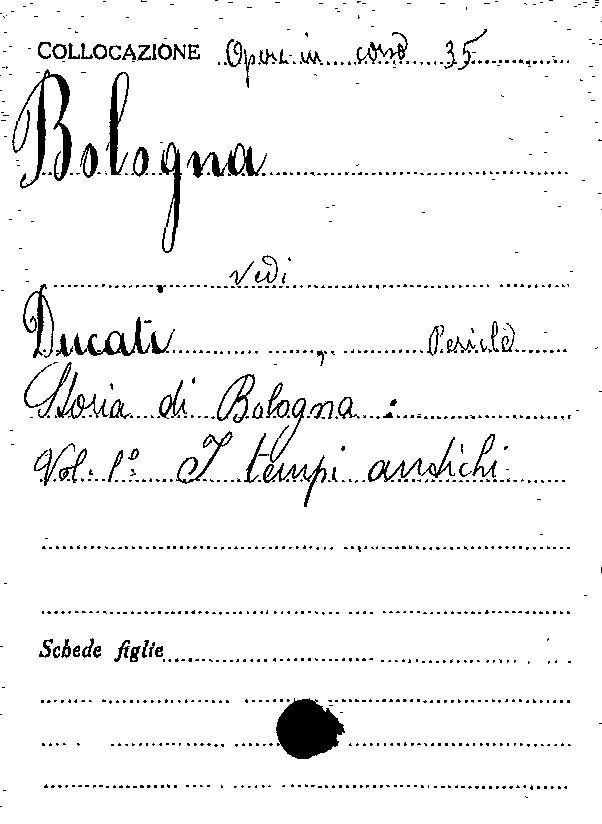 COLLOCAZIONE Opere in corso 35
Bologna
vedi
Ducati, Pericle
Storia di Bologna:
Vol. 1º I tempi antichi
Schede figlie